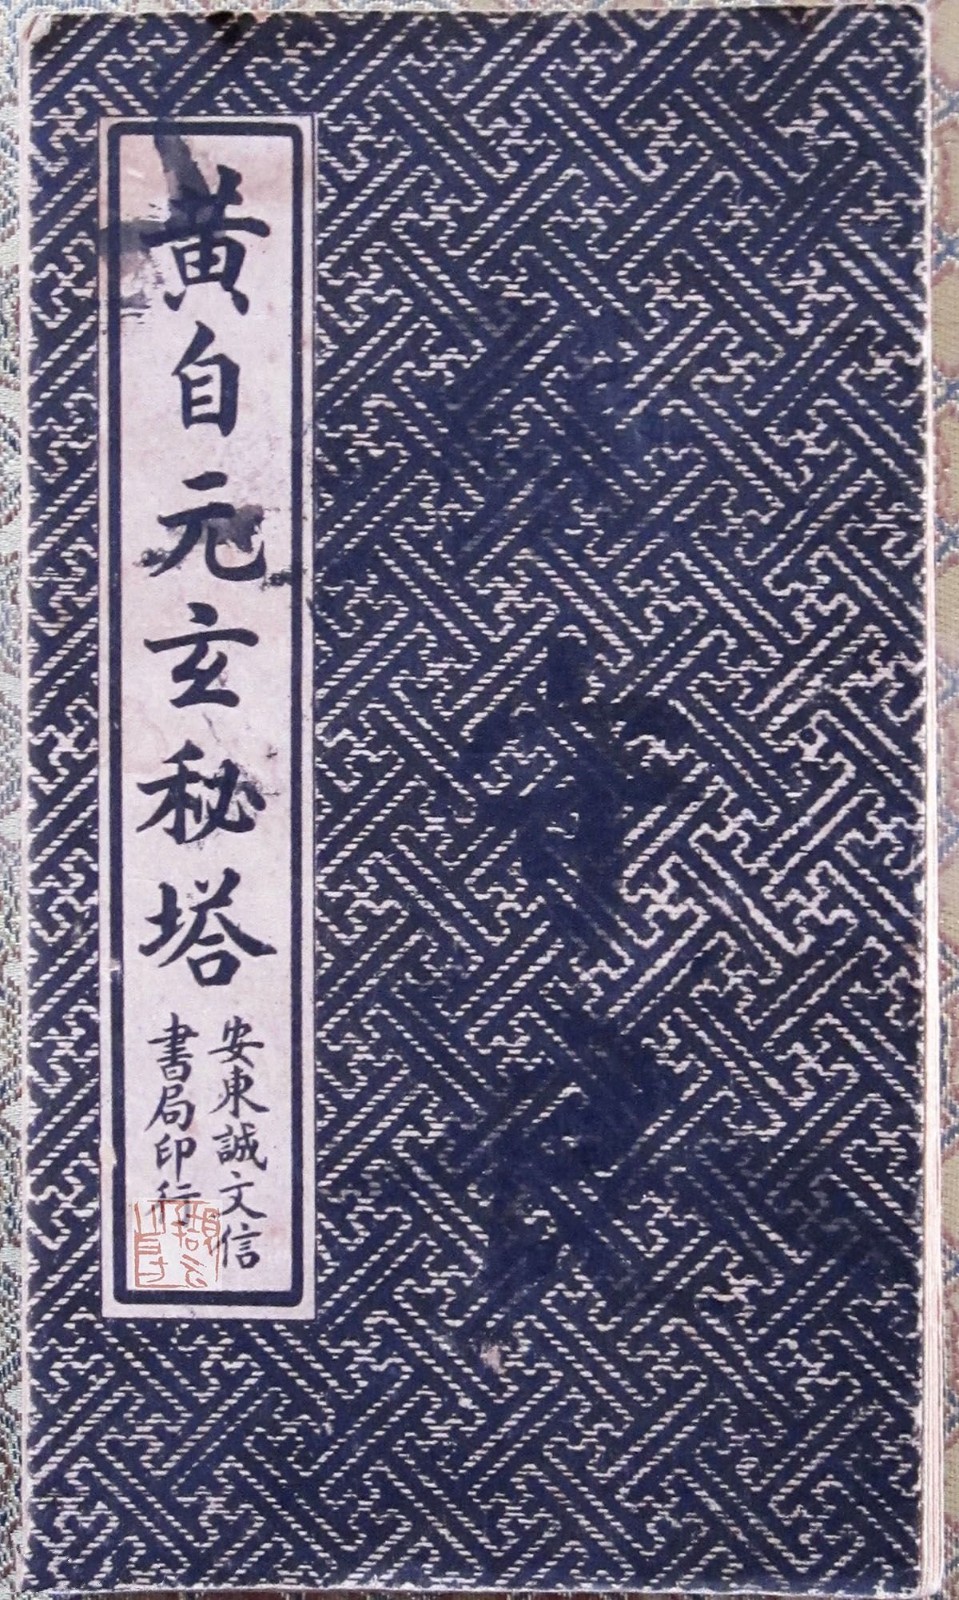 黄自元玄秘塔
安東誠文信
書局印行